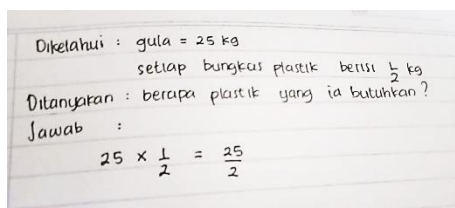 Diketahui : gula = 25 kg
setiap bungkus plastik berisi 1/2 kg
Ditanyakan : berapa plastik yang ia butuhkan ?
Jawab :
25 × 1/2 = 25/2